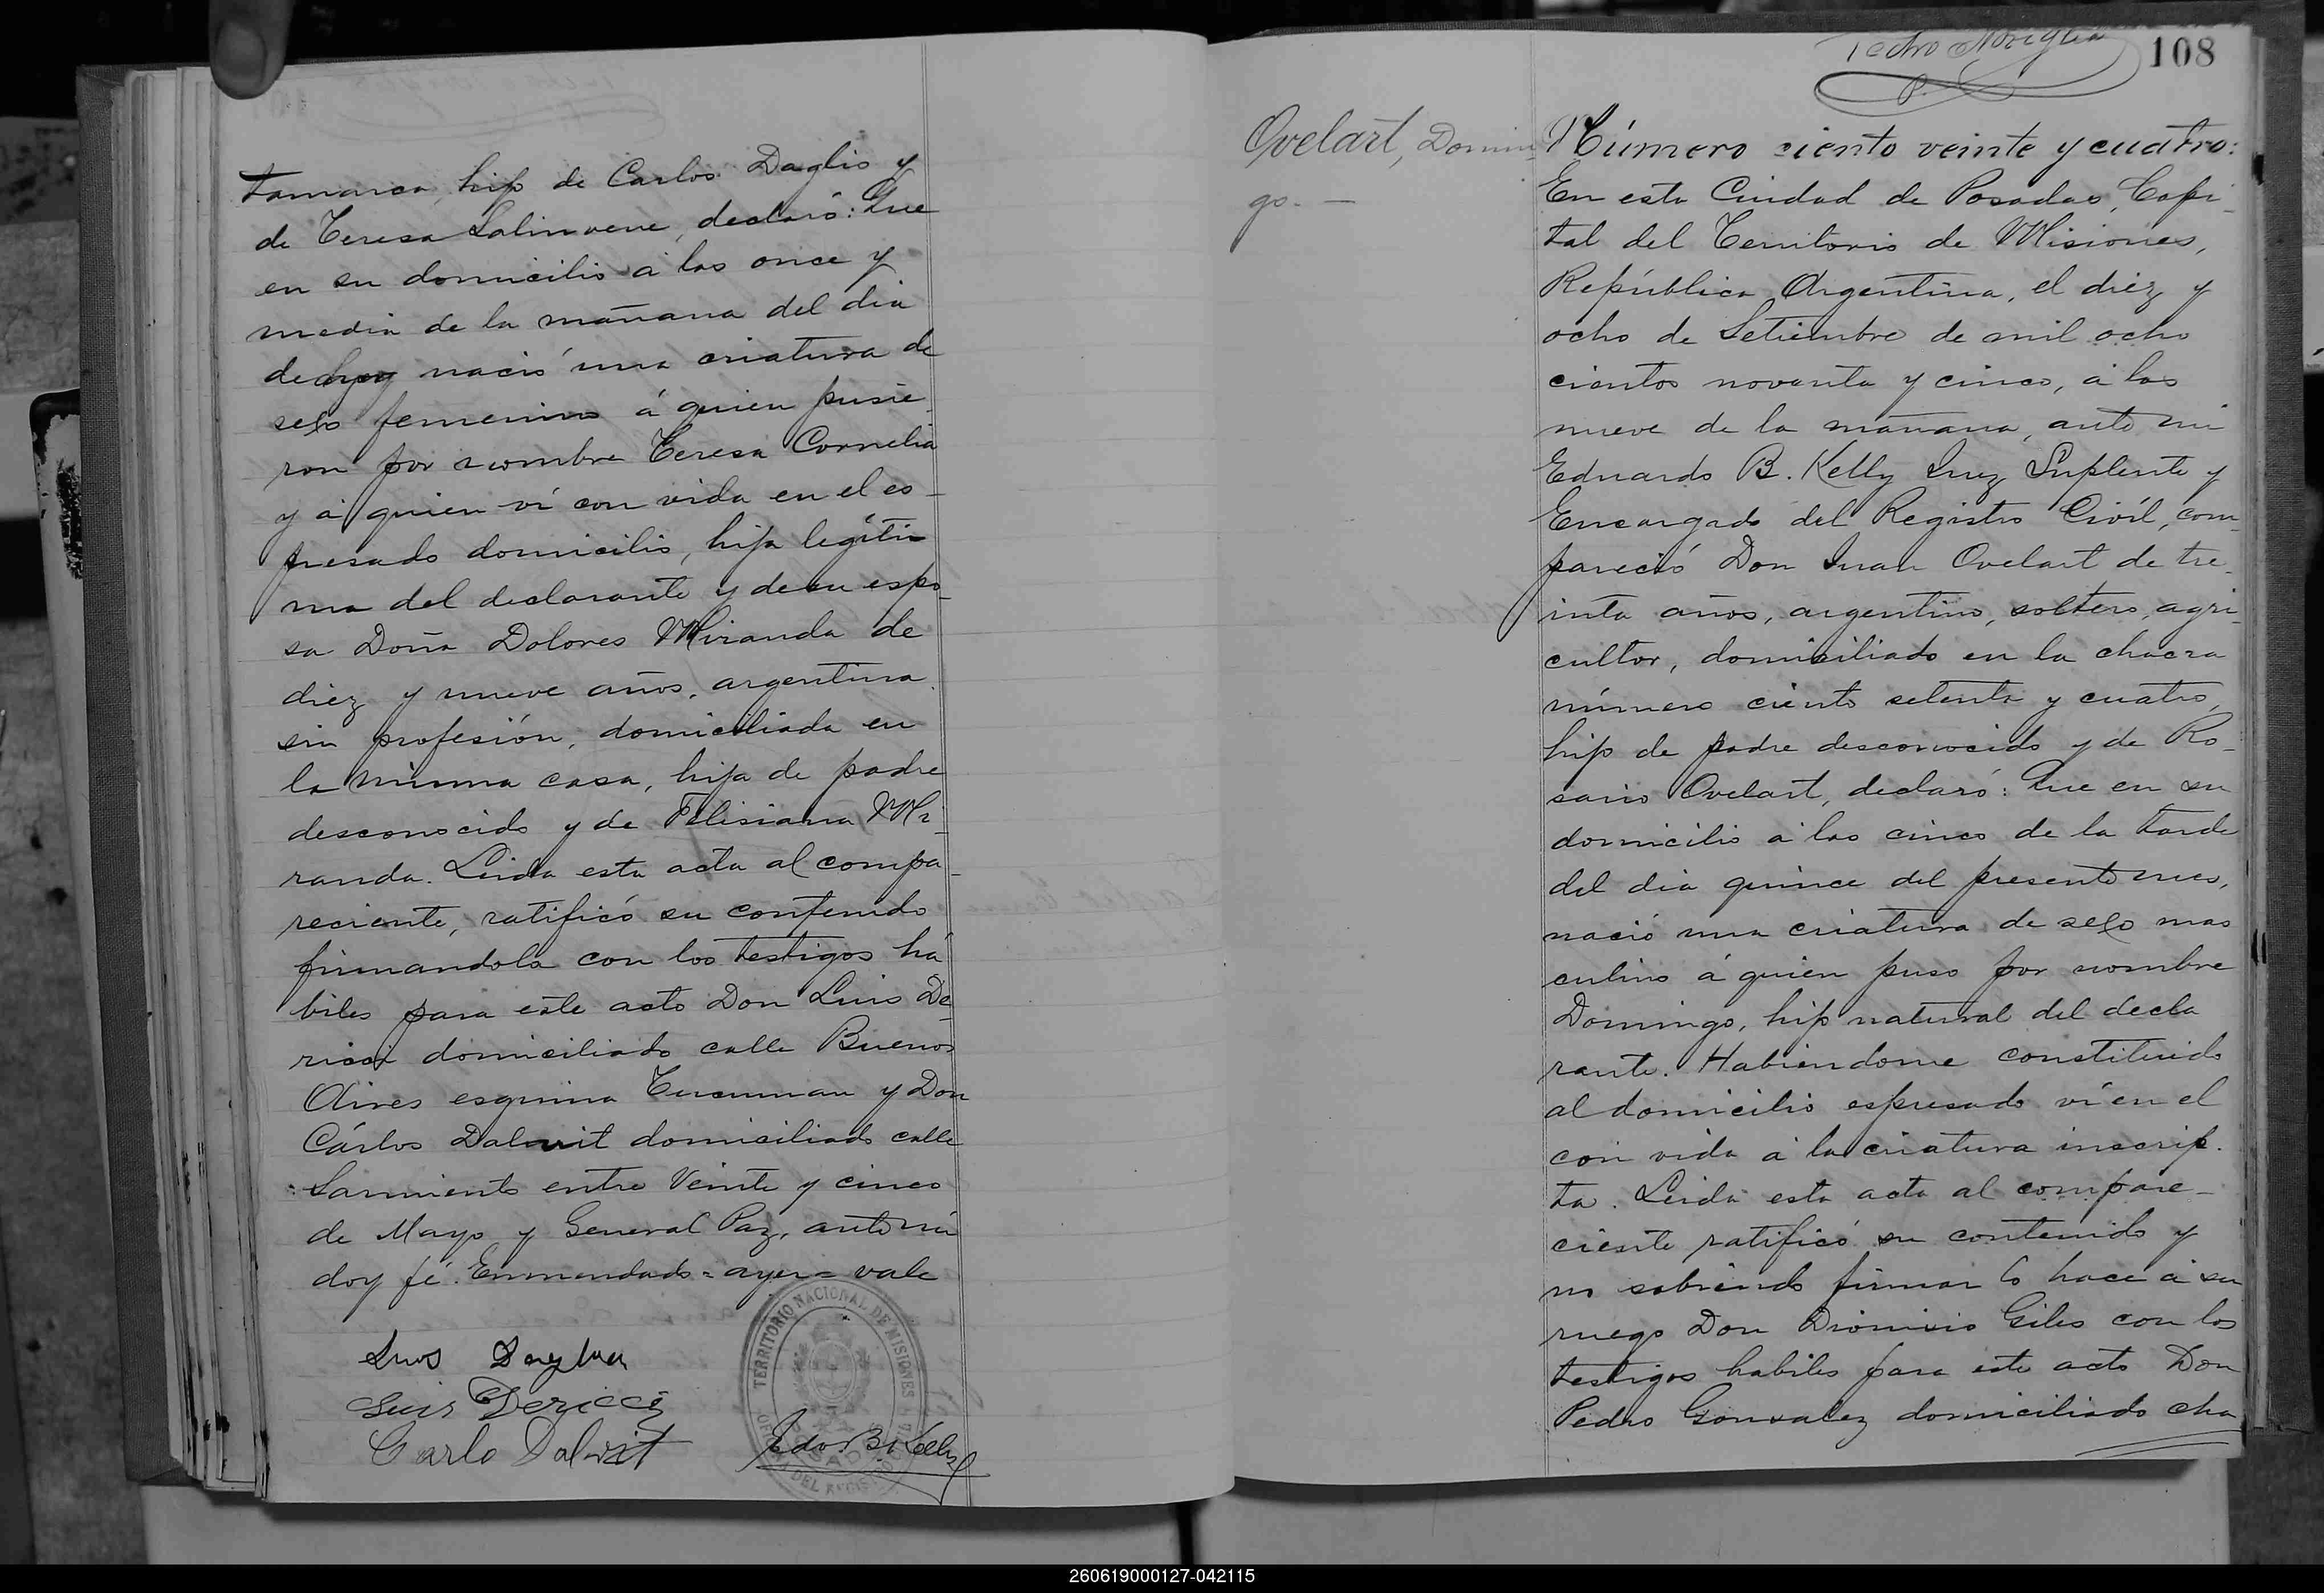 tamarca, hijo de Carlos Daglio y
de Teresa Salinvene, declaró: Que
en su domicilio á las once y
media de la mañana del dia
de ayer nació una criatura de
sexo femenino á quien pusie-
ron por nombre Teresa Cornelia
y á quien ví con vida en el es-
presado domicilio, hija legíti-
ma del declarante y de su espo-
sa Doña Dolores Miranda de
diez y nueve años, argentina
sin profesión, domiciliada en
la misma casa, hija de padre
desconocido y de Felisiana Mi-
randa. Leida esta acta al compa-
reciente, ratificó su contenido
firmandola con los testigos há
biles para este acto Don Luis De-
ricci domiciliado calle Buenos
Aires esquina Tucuman y Don
Cárlos Dalwit domiciliado calle
Sarmiento entre Veinte y cinco
de Mayo y General Paz, ante mí
doy fé. Enmendado = ayer = vale
Luis Dericci
Carlo Dalwit
Edo. B. Kelly
TERRITORIO NACIONAL DE MISIONES
Pedro
P.
108
Ovelart, Domin-
go. —
Número ciento veinte y cuatro:
En esta Ciudad de Posadas, Capi-
tal del Territorio de Misiones,
República Argentina, el diez y
ocho de Setiembre de mil ocho
cientos noventa y cinco, á las
nueve de la mañana, ante mi
Eduardo B. Kelly Juez Suplente y
Encargado del Registro Civíl, com-
pareció Don Juan Ovelart de tre-
inta años, argentino, soltero, agri-
cultor, domiciliado en la chacra
número ciento setenta y cuatro,
hijo de padre desconocido y de Ro-
sario Ovelart, declaró: Que en su
domicilio á las cinco de la tarde
del dia quince del presente mes,
nació una criatura de sexo mas
culino á quien puso por nombre
Domingo, hijo natural del decla
rante. Habiéndome constituido
al domicilio espresado ví en el
con vida á la criatura inscrip-
ta. Leida esta acta al compare-
ciente ratificó su contenido y
no sabiendo firmar lo hace á su
ruego Don Dionisio Giles con los
testigos habiles para este acto Don
Pedro Gonzalez domiciliado cha
260619000127-042115